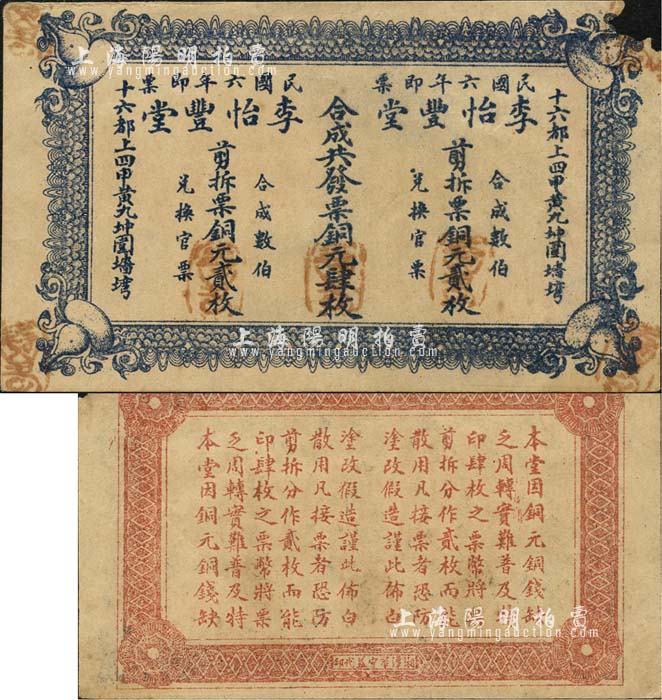 上海陽明拍賣
www.yangmingauction.com
民國六年即票
李怡豐堂
剪拆票銅元貳枚
合成數伯
兑換官票
十六都上四甲黄九坤園墻塆
合成共發票銅元肆枚
民國六年即票
李怡豐堂
剪拆票銅元貳枚
合成數伯
兑換官票
十六都上四甲黄九坤園墻塆
上海陽明拍賣
www.yangmingauction.com
本堂因銅元銅錢缺
乏周轉實難普及特
印肆枚之票幣將票
剪拆分作貳枚而能
散用凡接票者恐防
塗改假造謹此佈白
本堂因銅元銅錢缺
乏周轉實難普及特
印肆枚之票幣將票
剪拆分作貳枚而能
散用凡接票者恐防
塗改假造謹此佈白
上海陽明拍賣
www.yangmingauction.com